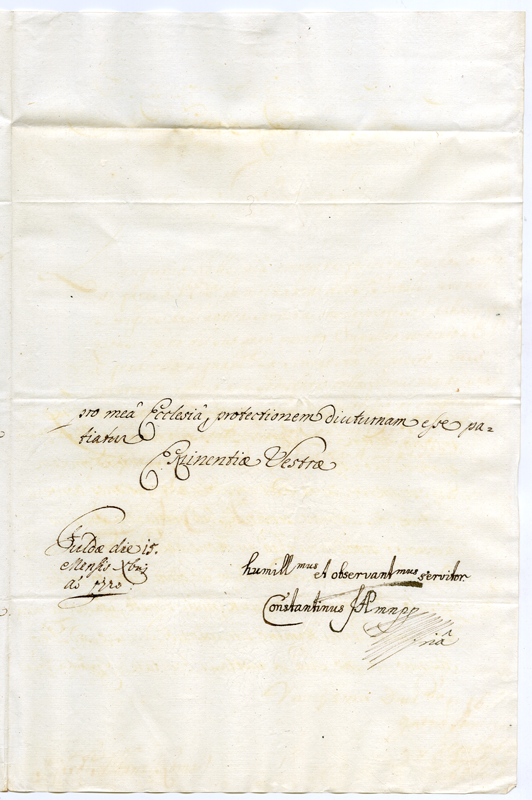 pro meâ Ecclesiâ, protectionem diuturnam esse pa=
tiatur
Eminentiæ Vestræ
Fuldæ die 15.
Mensis Xbris
aô
humill mus et observant mus servitor
Constantinus